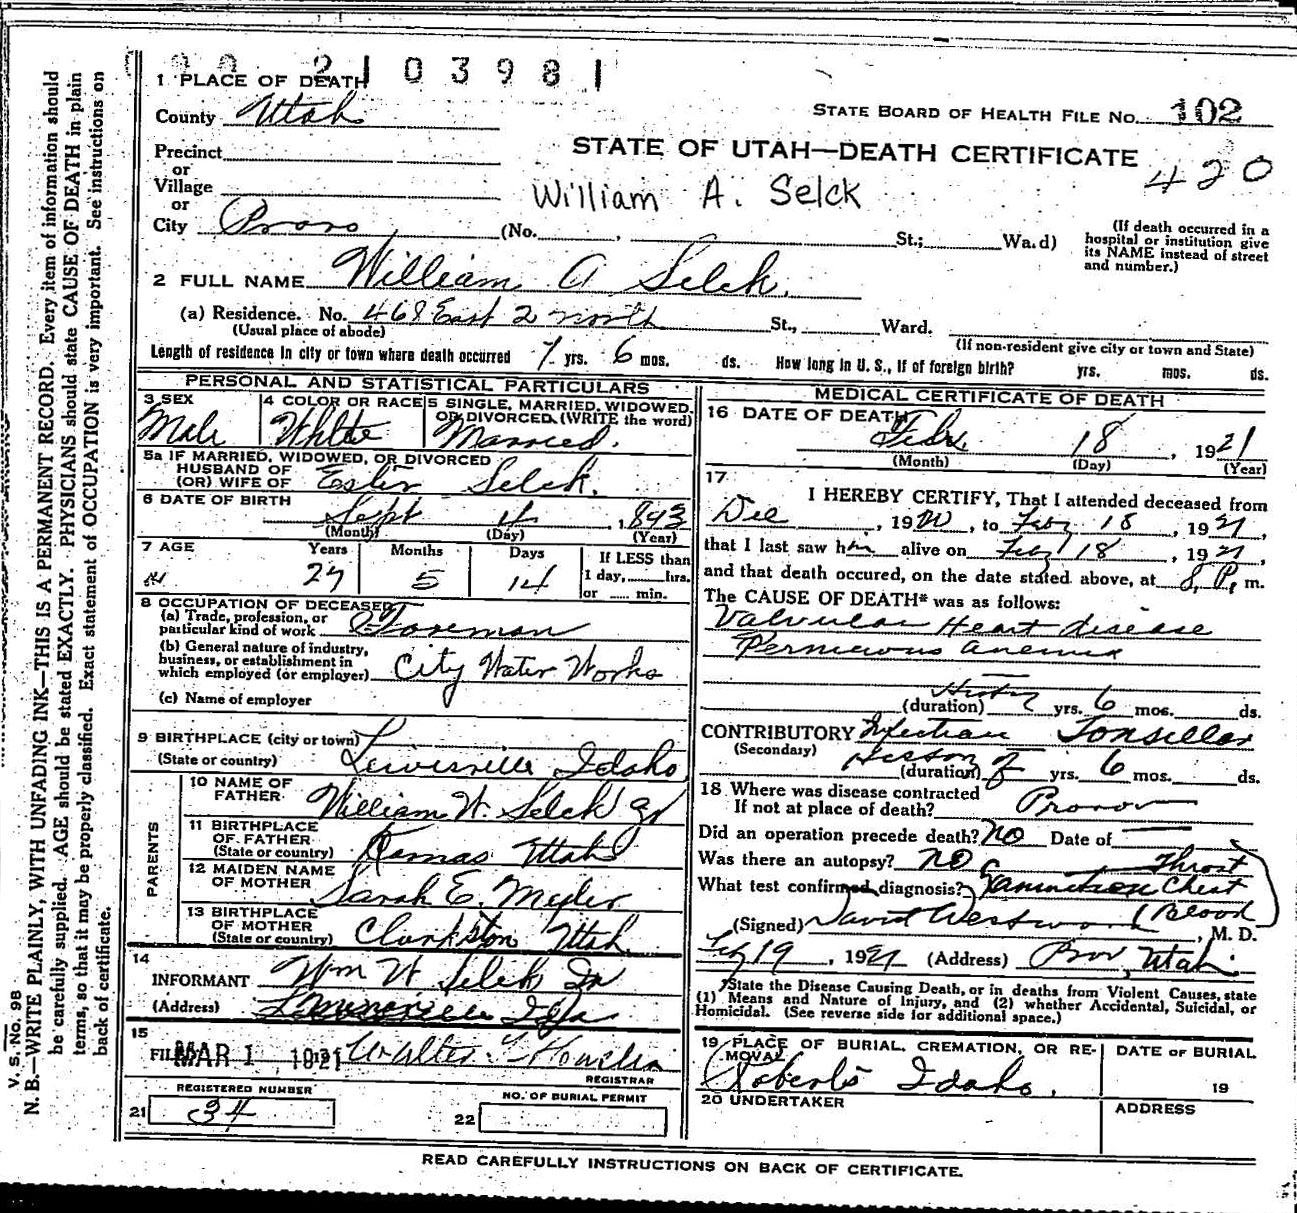 2103981
1 PLACE OF DEATH
County Utah
STATE BOARD OF HEALTH FILE No. 102
Precinct
or
Village
or
STATE OF UTAH—DEATH CERTIFICATE
420
William A. Selck
City Provo (No. , St.; Wa.d)
(If death occurred in a
hospital or institution give
its NAME instead of street
and number.)
2 FULL NAME William A Selck.
(a) Residence. No. 468 East 2 North St., Ward.
(Usual place of abode)
(If non-resident give city or town and State)
Length of residence in city or town where death occurred 7 yrs. 6 mos. ds. How long in U. S., if of foreign birth? yrs. mos. ds.
PERSONAL AND STATISTICAL PARTICULARS
3 SEX
Male
4 COLOR OR RACE
White
5 SINGLE, MARRIED, WIDOWED,
OR DIVORCED (WRITE the word)
Married.
5a IF MARRIED, WIDOWED, OR DIVORCED
HUSBAND OF
(OR) WIFE OF Selck.
6 DATE OF BIRTH
Sept 4, 1893
(Month) (Day) (Year)
7 AGE Years Months Days
27 5 14
If LESS than
1 day, hrs.
or min.
8 OCCUPATION OF DECEASED
(a) Trade, profession, or
particular kind of work Foreman
(b) General nature of industry,
business, or establishment in
which employed (or employer) City Water Works
(c) Name of employer
9 BIRTHPLACE (city or town)
(State or country) Lewisville Idaho
PARENTS
10 NAME OF
FATHER William W. Selck
11 BIRTHPLACE
OF FATHER
(State or country) Kamas Utah
12 MAIDEN NAME
OF MOTHER Sarah E.
13 BIRTHPLACE
OF MOTHER
(State or country) Clarkston Utah
14
INFORMANT Wm W Selck
(Address) Ida
15
FILED MAR 1 1921 Walter
REGISTRAR
REGISTERED NUMBER
21 34
NO. OF BURIAL PERMIT
22
MEDICAL CERTIFICATE OF DEATH
16 DATE OF DEATH
18, 1921
(Month) (Day) (Year)
17
I HEREBY CERTIFY, That I attended deceased from
Dec , 1920, to Feby 18, 1921,
that I last saw him alive on Feby 18, 1921,
and that death occured, on the date stated above, at 8 P. m.
The CAUSE OF DEATH* was as follows:
Valvular Heart disease
Pernicious anemia
(duration) yrs. 6 mos. ds.
CONTRIBUTORY Tonsillar
(Secondary)
(duration) yrs. 6 mos. ds.
18 Where was disease contracted
If not at place of death? Provo
Did an operation precede death? No Date of
Was there an autopsy? No
What test confirmed diagnosis? Throat
Chest
Blood
(Signed) David Westwood, M. D.
19, 1921 (Address) Utah
*State the Disease Causing Death, or in deaths from Violent Causes, state
(1) Means and Nature of Injury, and (2) whether Accidental, Suicidal, or
Homicidal. (See reverse side for additional space.)
19 PLACE OF BURIAL, CREMATION, OR RE-
MOVAL
Roberts Idaho.
DATE OF BURIAL
19
20 UNDERTAKER
ADDRESS
READ CAREFULLY INSTRUCTIONS ON BACK OF CERTIFICATE.
V. S. No. 9B
N. B.—WRITE PLAINLY, WITH UNFADING INK—THIS IS A PERMANENT RECORD. Every item of information should
be carefully supplied. AGE should be stated EXACTLY. PHYSICIANS should state CAUSE OF DEATH in plain
terms, so that it may be properly classified. Exact statement of OCCUPATION is very important. See instructions on
back of certificate.